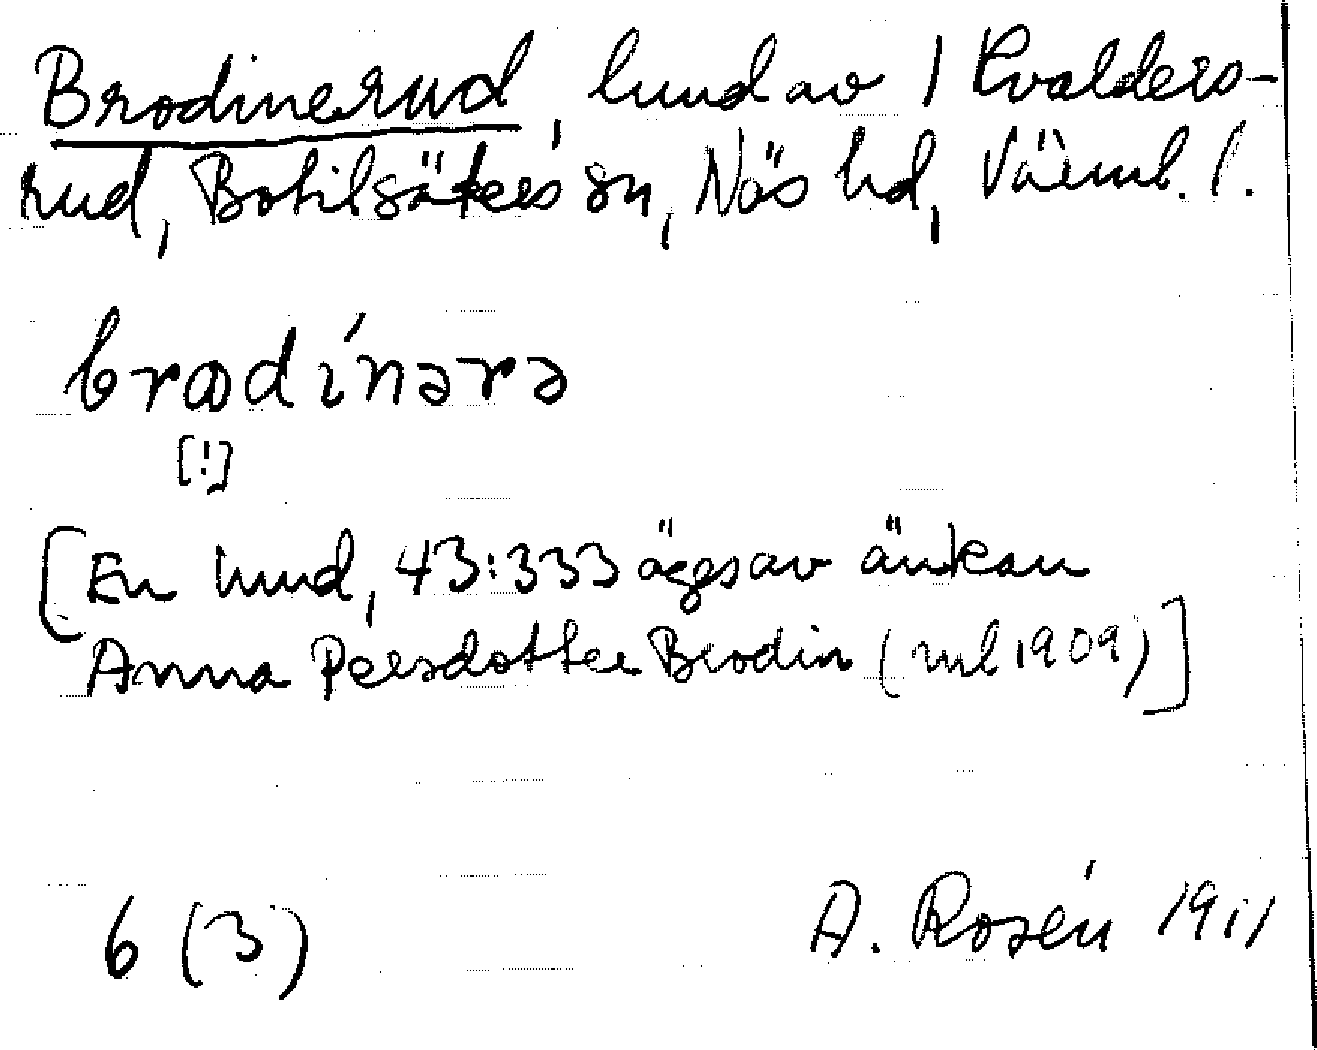 Brodinerud, lund av 1 Evalders-
rud, Botilsäters sn, Näs hd, Värml. l.
brꞷdinərə
[!]
[En lund, 43:333 äges av änkan
Anna Persdotter Brodin (ml 1909)]
6 (3) A. Rosén 1911